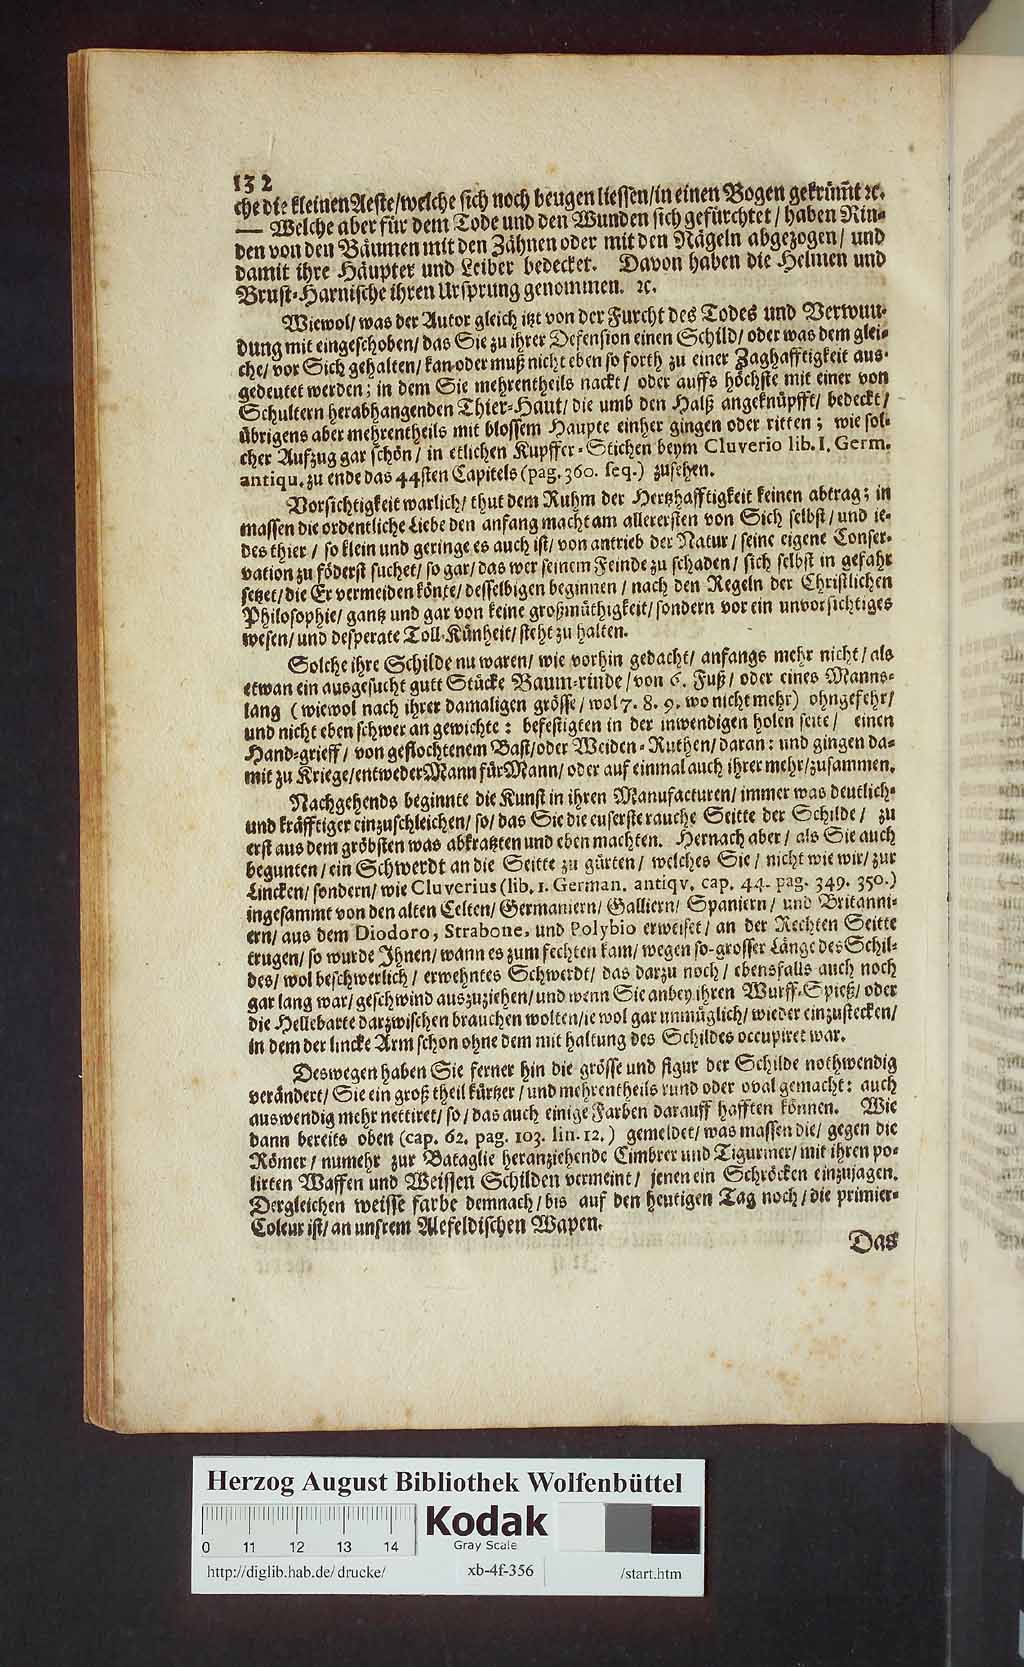 132
che die kleinen Aeste/welche sich noch beugen liessen/in einen Bogen gekrüm̃t ꝛc.
— Welche aber für dem Tode und den Wunden sich gefürchtet/ haben Rin-
den von den Bäumen mit den Zähnen oder mit den Nägeln abgezogen/ und
damit ihre Häupter und Leiber bedecket. Davon haben die Helmen und
Brust-Harnische ihren Ursprung genommen. ꝛc.
Wiewol/ was der Autor gleich itzt von der Furcht des Todes und Verwun-
dung mit eingeschoben/ das Sie zu ihrer Defension einen Schild/ oder was dem glei-
che/ vor Sich gehalten/ kan oder muß nicht eben so forth zu einer Zaghafftigkeit aus-
gedeutet werden; in dem Sie mehrentheils nackt/ oder auffs höchste mit einer von
Schultern herabhangenden Thier-Haut/ die umb den Halß angeknüpfft/ bedeckt/
übrigens aber mehrentheils mit blossem Haupte einher gingen oder ritten; wie sol-
cher Aufzug gar schön/ in etlichen Kupffer-Stichen beym Cluverio lib. I. Germ.
antiqu. zu ende das 44sten Capitels (pag. 360. seq.) zusehen.
Vorsichtigkeit warlich/ thut dem Ruhm der Hertzhafftigkeit keinen abtrag; in
massen die ordentliche Liebe den anfang macht am allerersten von Sich selbst/ und ie-
des thier/ so klein und geringe es auch ist/ von antrieb der Natur/ seine eigene Conser-
vation zu föderst suchet/ so gar/ das wer seinem Feinde zu schaden/ sich selbst in gefahr
setzet/ die Er vermeiden könte/ desselbigen beginnen/ nach den Regeln der Christlichen
Philosophie/ gantz und gar von keine großmüthigkeit/ sondern vor ein unvorsichtiges
wesen/ und desperate Toll-Künheit/ steht zu halten.
Solche ihre Schilde nu waren/ wie vorhin gedacht/ anfangs mehr nicht/ als
etwan ein ausgesucht gutt Stücke Baum-rinde/ von 6. Fuß/ oder eines Manns-
lang (wiewol nach ihrer damaligen grösse/ wol 7. 8. 9. wo nicht mehr) ohngefehr/
und nicht eben schwer an gewichte: befestigten in der inwendigen holen seite/ einen
Hand-grieff/ von geflochtenem Bast/oder Weiden-Ruthen/ daran: und gingen da-
mit zu Kriege/entweder Mann für Mann/ oder auf einmal auch ihrer mehr/zusammen.
Nachgehends beginnte die Kunst in ihren Manufacturen/ immer was deutlich-
und kräfftiger einzuschleichen/ so/ das Sie die euserste rauche Seitte der Schilde/ zu
erst aus dem gröbsten was abkratzten und eben machten. Hernach aber/ als Sie auch
begunten/ ein Schwerdt an die Seitte zu gürten/ welches Sie/ nicht wie wir/ zur
Lincken/ sondern/ wie Cluverius (lib. 1. German. antiqv. cap. 44. pag. 349. 350.)
ingesammt von den alten Celten/ Germaniern/ Galliern/ Spaniern/ und Britanni-
ern/ aus dem Diodoro, Strabone, und Polybio erweiset/ an der Rechten Seitte
trugen/ so wurde Ihnen/ wann es zum fechten kam/ wegen so-grosser Länge des Schil-
des/ wol beschwerlich/ erwehntes Schwerdt/ das darzu noch/ ebensfalls auch noch
gar lang war/ geschwind auszuziehen/ und wenn Sie anbey ihren Wurff-Spieß/ oder
die Hellebarte darzwischen brauchen wolten/ie wol gar unmüglich/ wieder einzustecken/
in dem der lincke Arm schon ohne dem mit haltung des Schildes occupiret war.
Deswegen haben Sie ferner hin die grösse und figur der Schilde nothwendig
verändert/ Sie ein groß theil kürtzer/ und mehrentheils rund oder oval gemacht: auch
auswendig mehr nettiret/ so/ das auch einige Farben darauff hafften können. Wie
dann bereits oben (cap. 62. pag. 103. lin. 12.) gemeldet/ was massen die/ gegen die
Römer/ numehr zur Bataglie heranziehende Cimbrer und Tiguriner/ mit ihren po-
lirten Waffen und Weissen Schilden vermeint/ jenen ein Schröcken einzujagen.
Dergleichen weisse farbe demnach/ bis auf den heutigen Tag noch/ die primier-
Coleur ist/ an unsrem Alefeldischen Wapen.
Das
Herzog August Bibliothek Wolfenbüttel
0 11 12 13 14
Kodak
Gray Scale
http://diglib.hab.de/drucke/ xb-4f-356 /start.htm